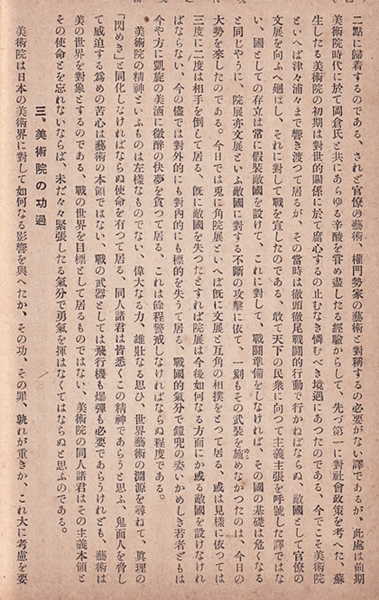 二點に歸着するのである、されど官僚の藝術、權門勢家の藝術と對稱するの必要がない譯であるが、此處は前期
美術院時代に於て岡倉氏と共にあらゆる辛酸を嘗め盡したる經驗からして、先づ第一に對社會政策を考へた、蘇
生したる美術院の初期は對世的關係に於て腐心するの止むなき憐むべき境遇にあつたのである、今でこそ美術院
といへば津々浦々まで響き渡つて居るが、その當時は徹頭徹尾戰鬪的行動で行かねばならぬ、敵國として官僚の
文展を向ふへ廻はし、それに對して戰を宣したのである、敢て天下の民衆に向つて主義主張を呼號した譯ではな
い、國としての存立は常に假裝敵國を設けて、これに對して、戰鬪準備をしなければ、その國の基礎は危くなる
と同じやうに、院展亦文展といふ敵國に對する不斷の攻擊に依て、一刻もその武裝を施めなかつたのは、今日の
大勢を來したのである。今日では兎に角院展といへば既に文展と互角の相撲をとつて居る、或は見樣に依つては
三度に二度は相手を倒して居る、既に敵國を失つたとすれば院展は今後如何なる方面にか或る敵國を設けなけれ
ばならない、今の儘では對外的にも對內的にも標的を失うて居る、戰國的氣分で鎧兜の姿いかめしき若者どもは
今や方に凱旋の美酒に微醉の快夢を貪つて居る、これは餘程警戒しなければならぬ程度である。
美術院の精神といふものは左樣なものでない、偉大なる力、雄壯なる思ひ、世界藝術の淵源を尋ねて、眞理の
「閃めき」と同化しなければならぬ使命を有つて居る、同人諸君は皆悉くこの精神であらうと思ふ、鬼面人を脅し
て威迫する爲めの苦心は藝術の本領ではない、戰の武器としては飛行機も爆彈も必要であらうけれども、藝術は
美の世界を對象とするのである、戰の世界を目標として居るものではない、美術院の同人諸君はその主義本領と
その使命とを忘れないならば、未だ々々緊張したる氣分で勇氣を揮はなくてはならぬと思ふのである。
三、美術院の功過
美術院は日本の美術界に對して如何なる影響を與へたか、その功、その罪、孰れが重きか、これ大に考慮を要